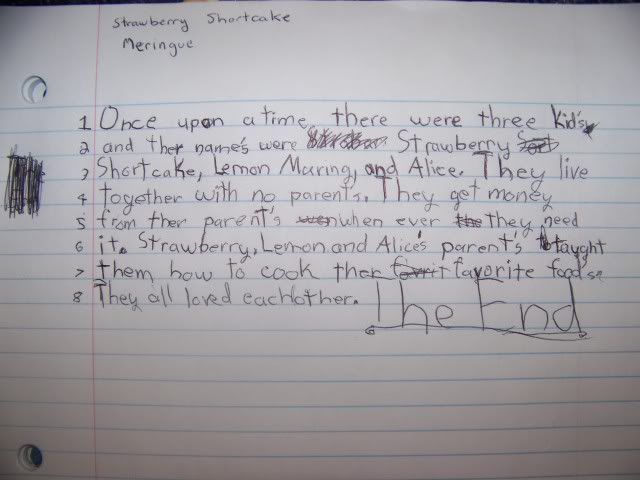 Strawberry Shortcake
Meringue
1 Once upon a time, there were three kid's,
2 and ther name's were Strawberry
3 Shortcake, Lemon Muring, and Alice. They live
4 together with no parent's. They get money
5 from ther parent's when ever they need
6 it. Strawberry, Lemon and Alice's parent's taught
7 them how to cook ther favorite foods.
8 They all loved eachother. The End